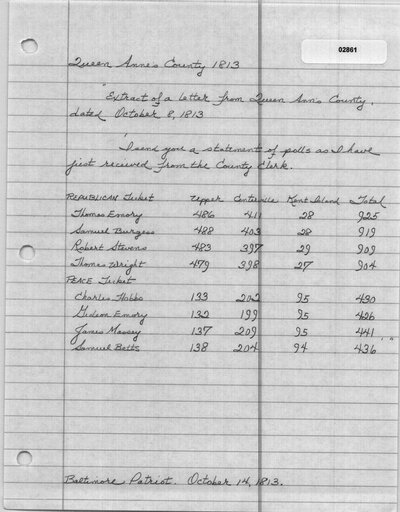 02861
Queen Anne's County 1813
"Extract of a letter from Queen Ann's County,
dated October 8, 1813
"I send you a statement of polls as I have
just recieved from the County Clerk.
REPUBLICAN Ticket Upper Centerville Kent Island Total
Thomas Emory 486 411 28 925
Samuel Burgess 488 403 28 919
Robert Stevens 483 397 29 909
Thomas Wright 479 398 27 904
PEACE Ticket
Charles Hobbs 133 202 95 430
Gideon Emory 132 199 95 426
James Massey 137 209 95 441
Samuel Betts 138 204 94 436 "
Baltimore Patriot. October 14, 1813.